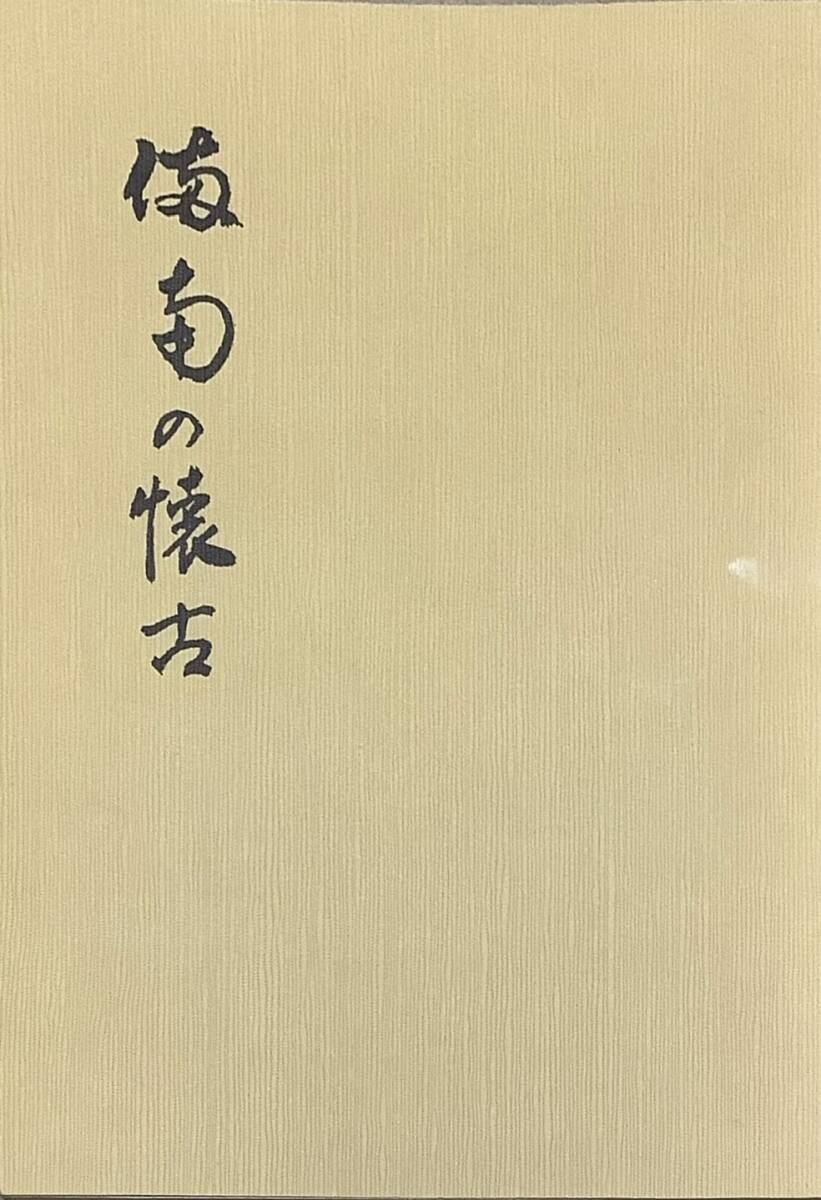 備南の懐古